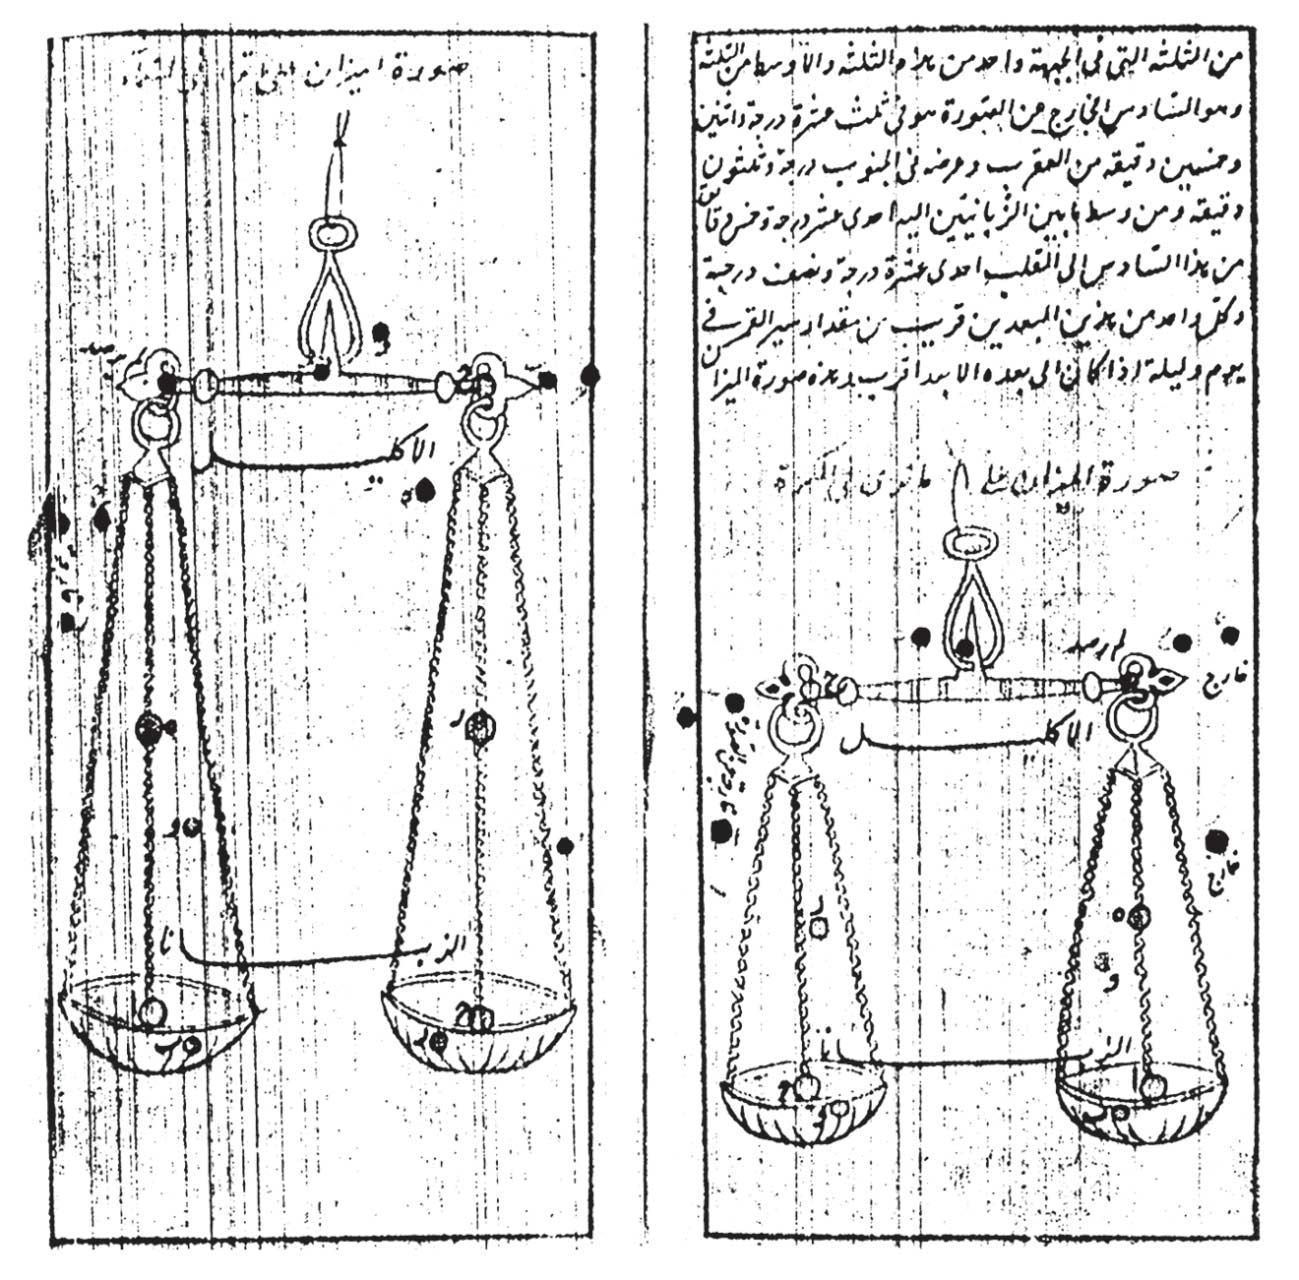 من الثلثه التى فى الجبهة واحد من هذه الثلثه والاوسط من الثلثه
وهو السادس الخارج عن الصورة هو فى ثلث عشرة درجة واثنين
وخمسين دقيقه من العقرب وعرضه فى الجنوب درجة وثلثون
دقيقه ومن وسط ما بين الزبانيين اليه احدى عشر درجة وخمس دقائق
من هذا السادس الى القلب احدى عشرة درجة ونصف درجة
وكل واحد من هذين البعدين قريب من مقدار سير القمر فى
يوم وليلة اذا كان الى بعده الابعد اقرب وهذه صورة الميزان
صورة الميزان على ما ترى فى الكرة
رصد
خارج
الاكليل
خارج
الزبانا
صورة الميزان على ما ترى فى السماء
رصد
الاكليل
الزبانا